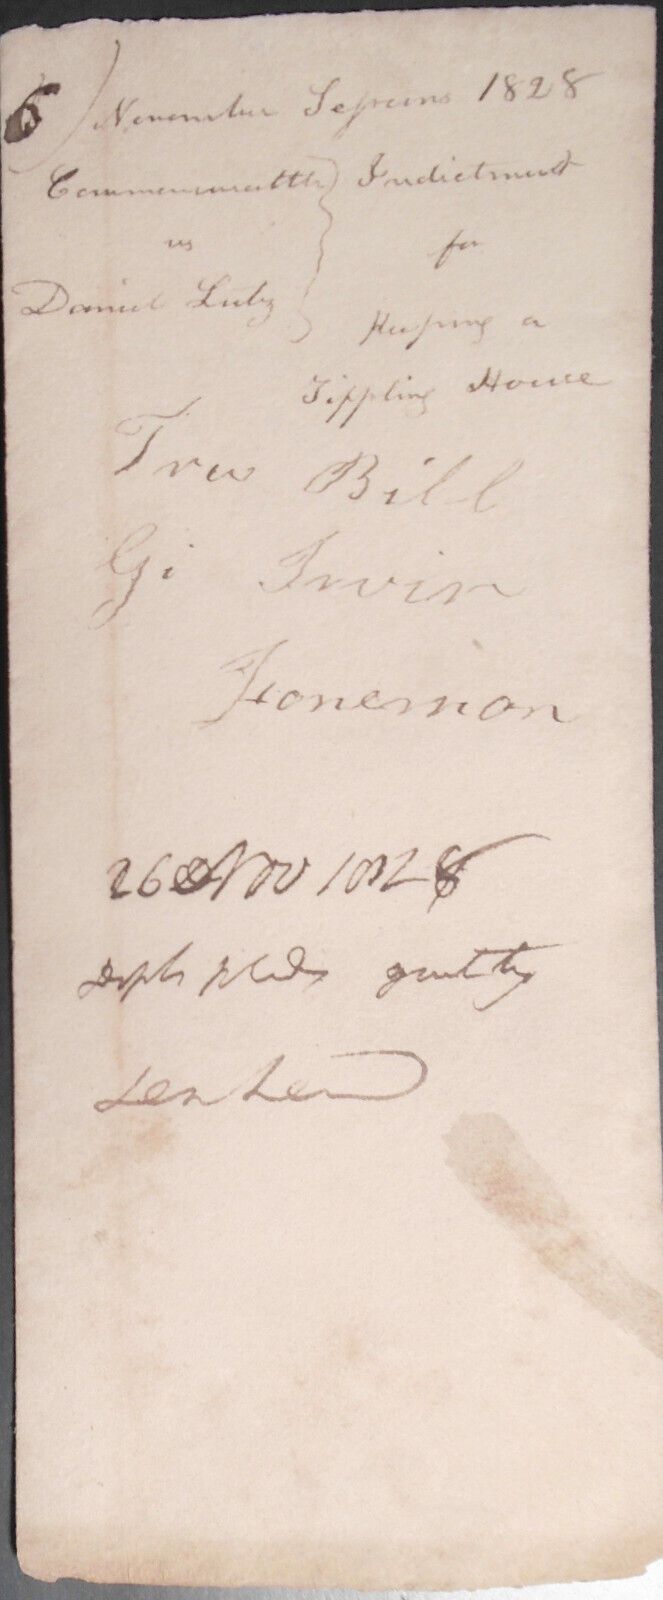 6) November Sessions 1828
Commonwealth
vs
Daniel Lutz
Indictment
for
Keeping a
Tippling House
True Bill
Irvin
Foremon
26 Nov 1828
pleads guilty